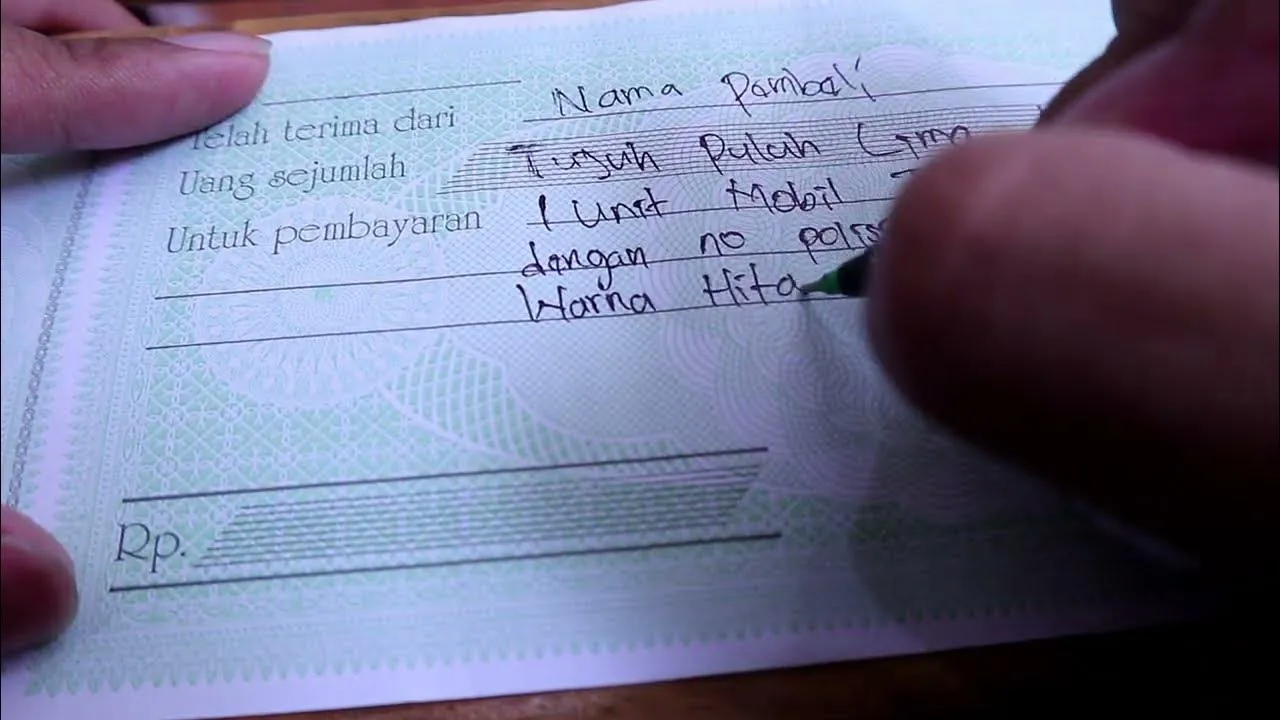 Telah terima dari Nama Pambali
Uang sejumlah Tujuh Puluh Lima
Untuk pembayaran 1 Unit Mobil
dengan no polisi
Warna Hita
Rp.